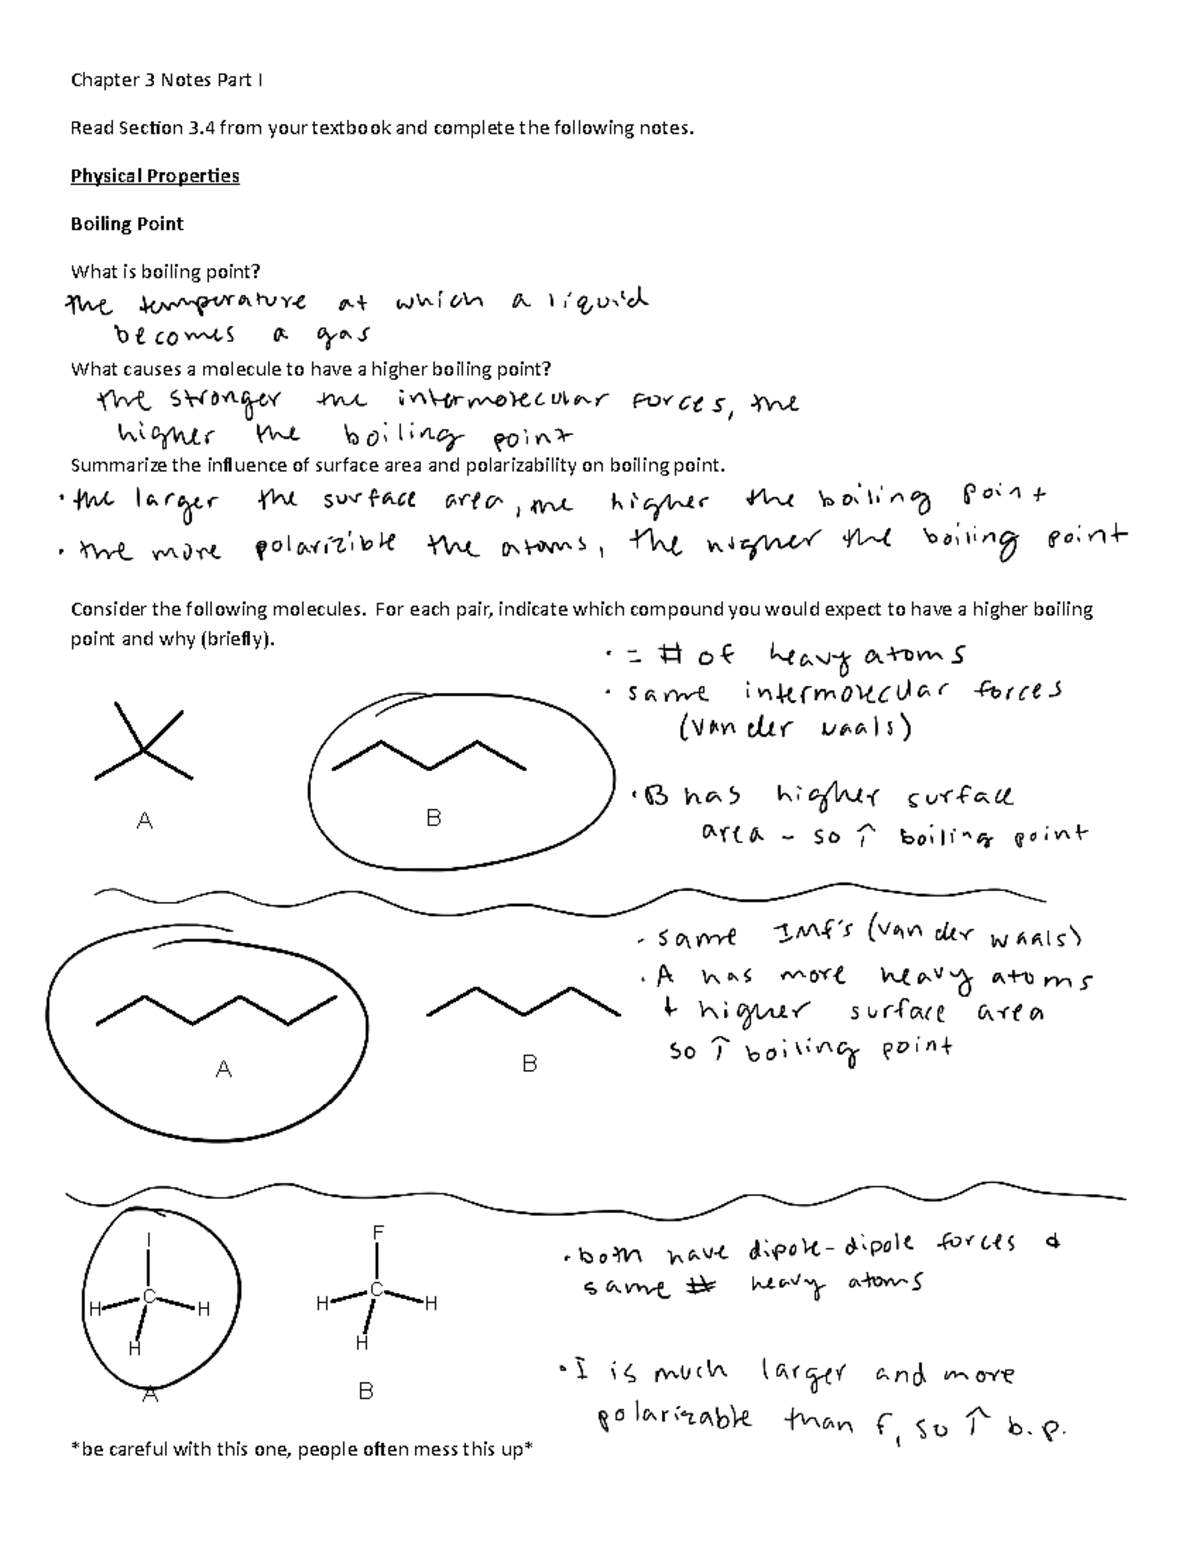 Chapter 3 Notes Part I
Read Section 3.4 from your textbook and complete the following notes.
Physical Properties
Boiling Point
What is boiling point?
the temperature at which a liquid
becomes a gas
What causes a molecule to have a higher boiling point?
the stronger the intermolecular forces, the
higher the boiling point
Summarize the influence of surface area and polarizability on boiling point.
• the larger the surface area, the higher the boiling point
• the more polarizible the atoms, the higher the boiling point
Consider the following molecules. For each pair, indicate which compound you would expect to have a higher boiling
point and why (briefly).
• = # of heavy atoms
• same intermolecular forces
(van der waals)
• B has higher surface
area - so ↑ boiling point
A
B
- same IMF's (van der waals)
• A has more heavy atoms
+ higher surface area
so ↑ boiling point
A
B
I
C
H
H
H
A
F
C
H
H
H
B
• both have dipole-dipole forces &
same # heavy atoms
• I is much larger and more
polarizable than F, so ↑ b.p.
*be careful with this one, people often mess this up*